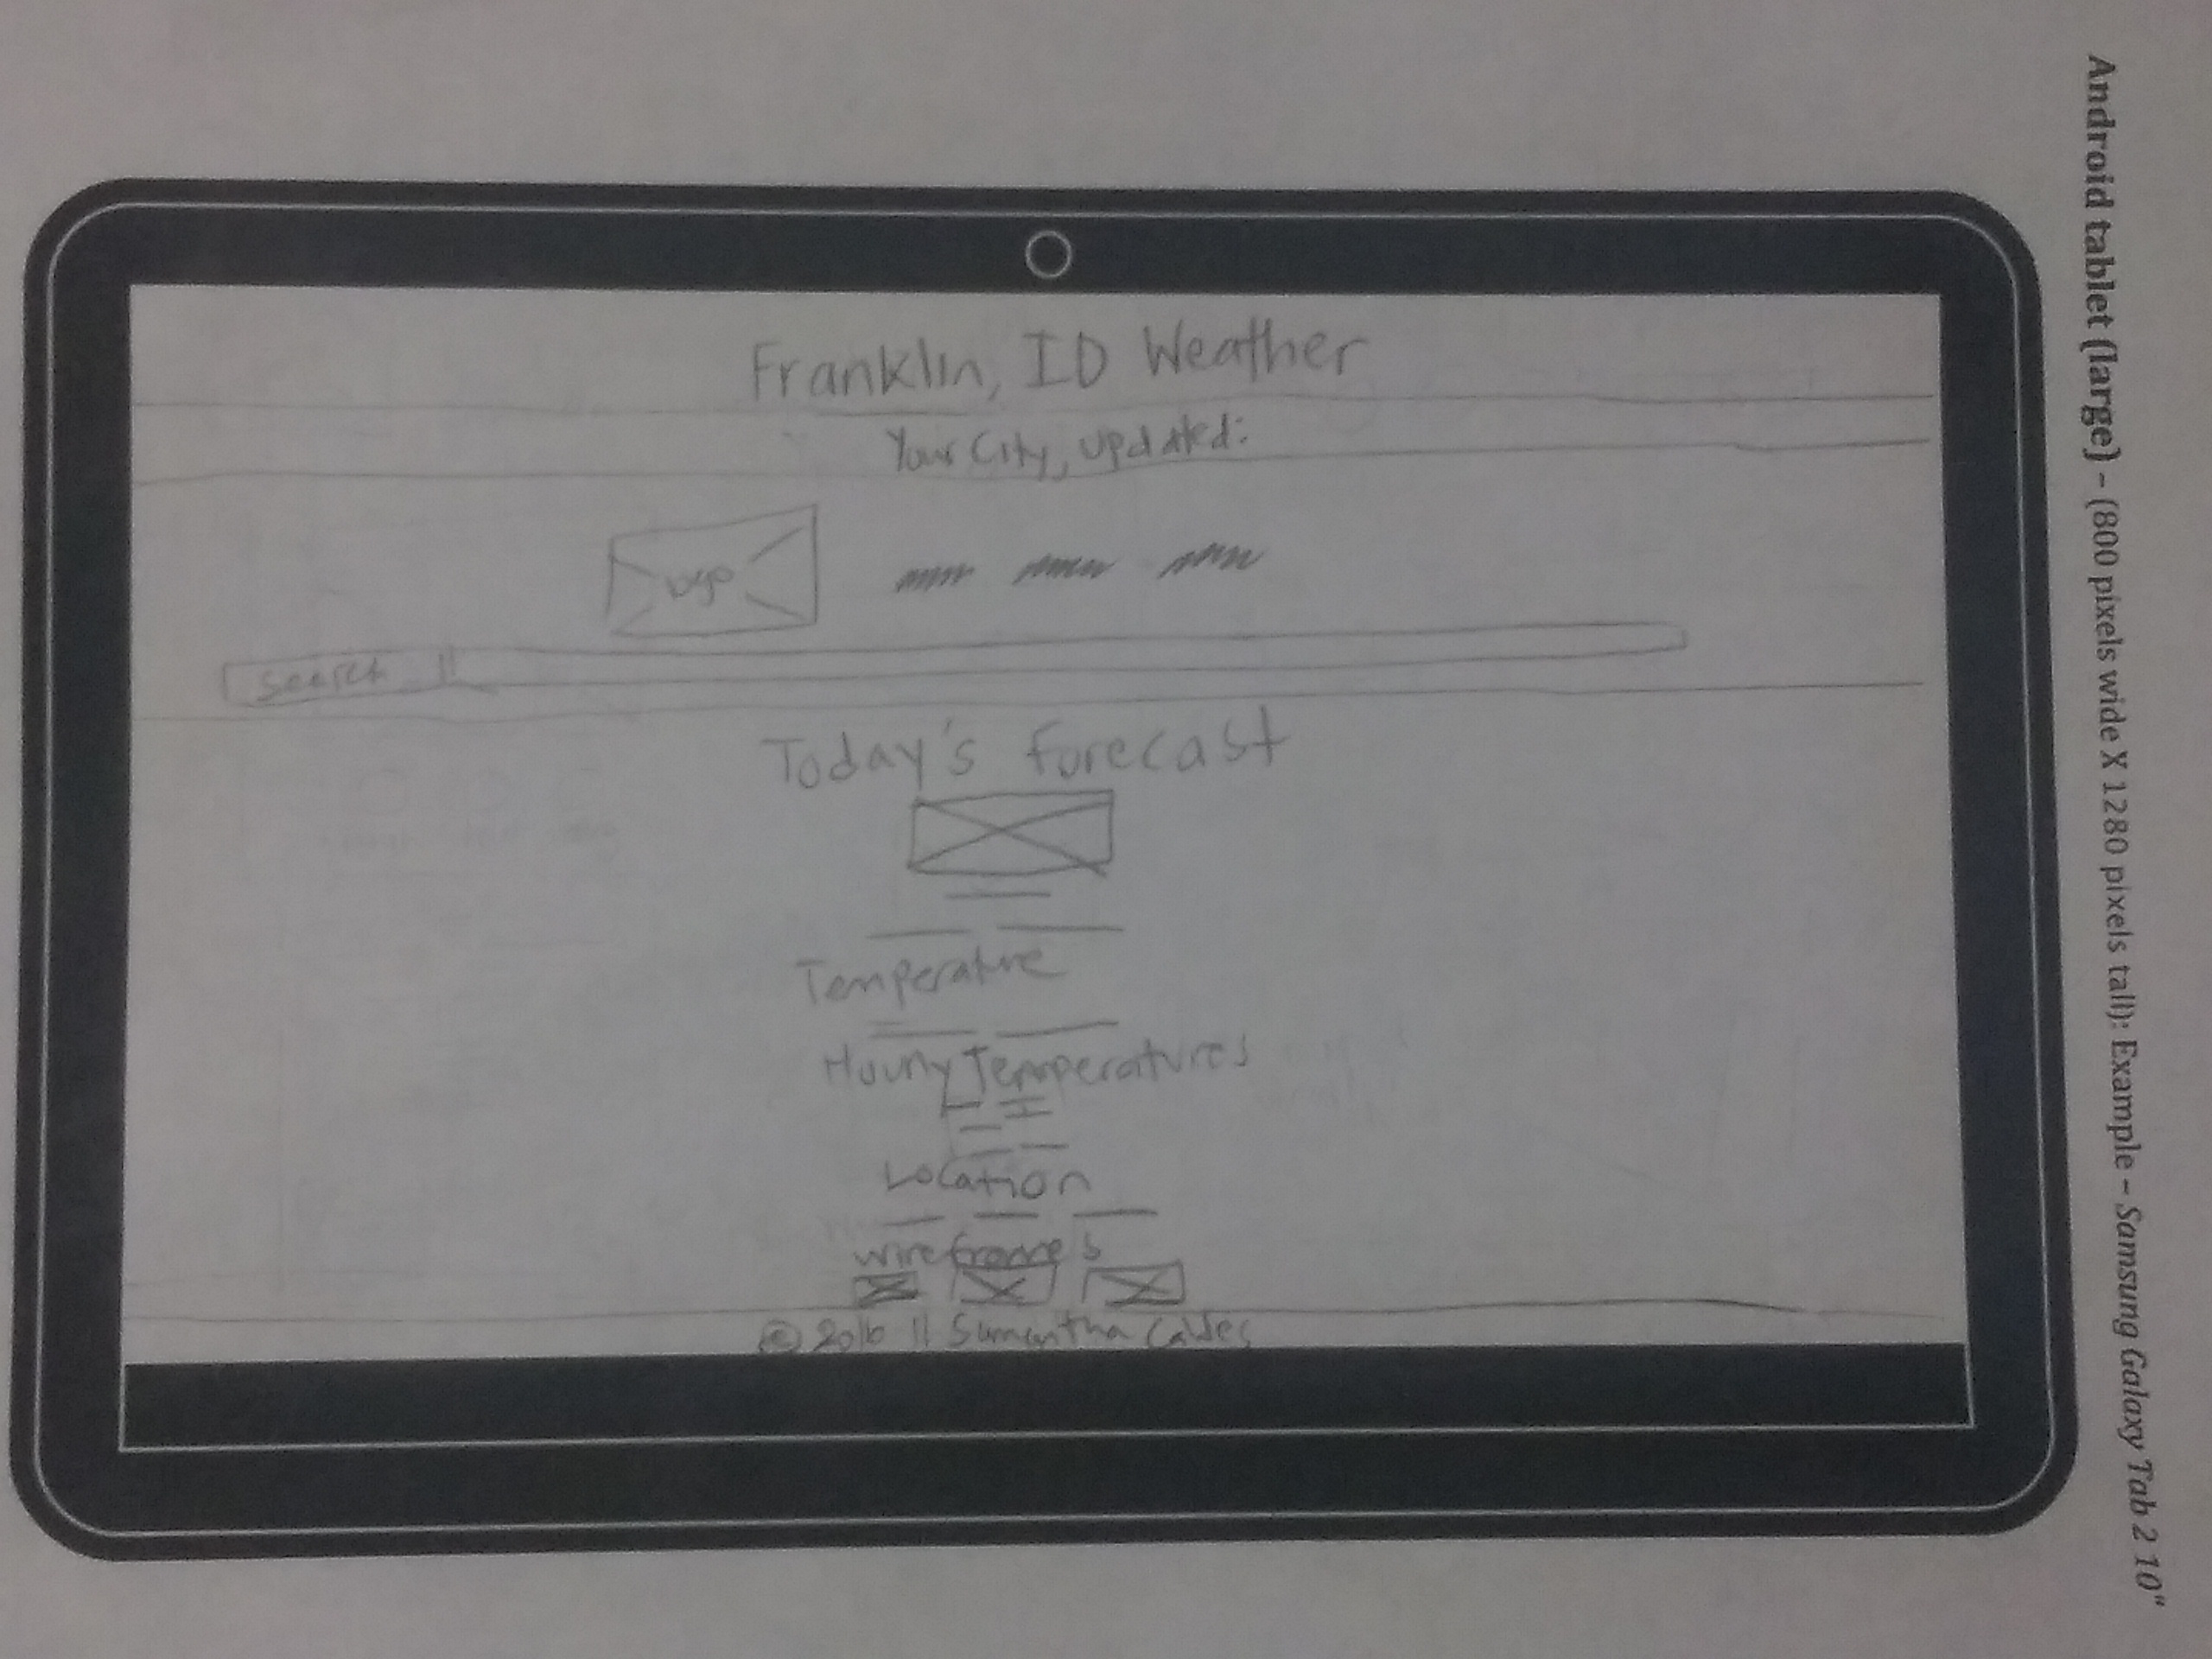 Android tablet (large) – (800 pixels wide X 1280 pixels tall): Example – Samsung Galaxy Tab 2 10"
Franklin, ID Weather
Your City, updated:
logo
search
Today's Forecast
Temperature
Hourly Temperatures
Location
wireframes
© 2016 || Samantha